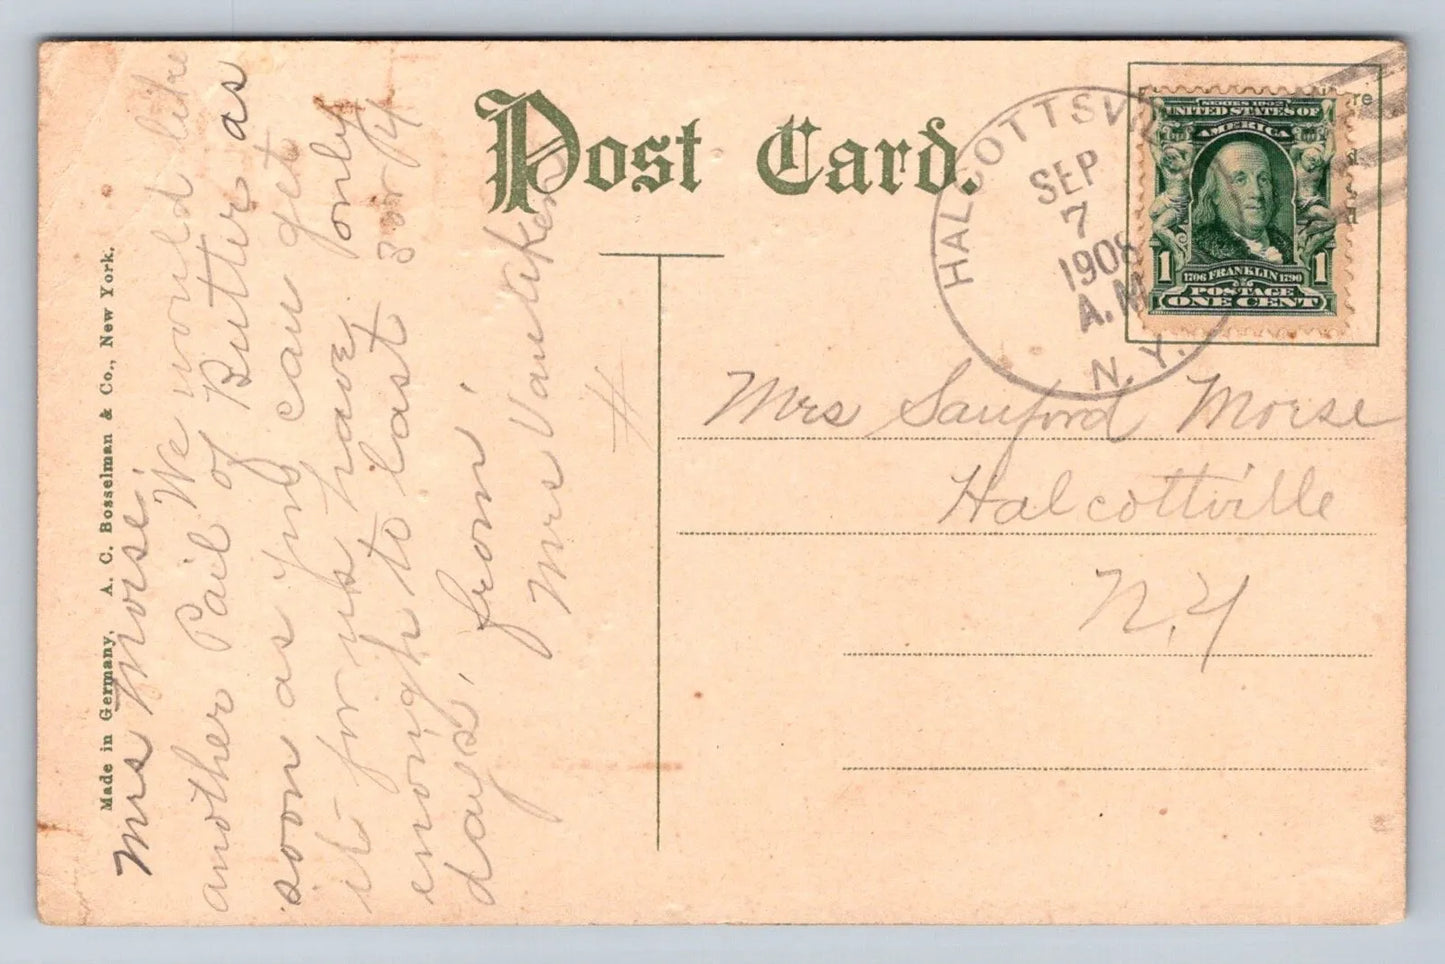 Post Card.
HALCOTTSVIL
SEP
7
1908
A.M
N.Y.
SERIES 1902
UNITED STATES OF
AMERICA
1 1
1706 FRANKLIN 1790
POSTAGE
ONE CENT
Mrs Sanford Morse
Halcottville
N.Y
Made in Germany, A. C. Bosselman & Co., New York.
Mrs Morse.
We would like
another Pail of Butter as
soon as you can get
it for us have only
enough to last 3 or 4
days.
from
Mrs VanAken